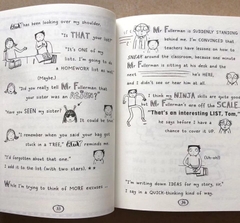 has been looking over my shoulder.
"Is THAT your list?"
"It's ONE of my
lists. I'm going to do
a HOMEWORK list as well."
(Maybe.)
"Did you really tell Mr Fullerman that
your sister was
"Have you SEEN my sister?
It could be true."
"I remember when you said your bag got
stuck in a TREE," reminds me.
"I'd forgotten about that one."
I add it to the list (with two stars).
While I'm trying to think of MORE excuses
Mr Fullerman is SUDDENLY STANDING
behind me. I'm CONVINCED that
teachers have lessons on how to
SNEAK around the classroom, because one minute
Mr Fullerman is sitting at his desk and the
next he's HERE,
and I didn't see or hear him at all.
I thought my NINJA skills are quite good
but Mr Fullerman's are off the SCALE.
"That's an interesting LIST, Tom,"
he says before I have a
chance to cover it off.
"I'm writing down IDEAS for my story, sir,"
I say in a QUICK-thinking kind of way.